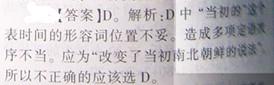 【答案】D。解析:D中“当初的”这个
表时间的形容词位置不妥。造成多项定语次
序不当。应为“改变了当初南北朝鲜的说法”。
所以不正确的应该选 D。